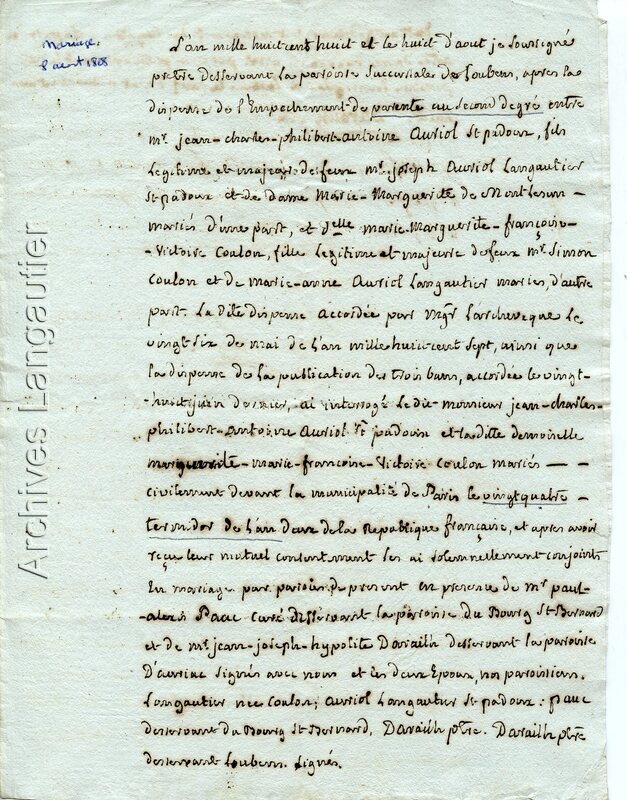 mariage.
8 aout 1808
L'an mille huit cent huit et le huit d'aout je soussigné
pretre desservant la paroisse succursiales de Loubens, apres la
dispense de l'Empechement de parenté au second degré entre
mr. jean-charles-philibert-antoine Auriol St padoux, fils
Legitime et majeur de feux mr. joseph Auriol Langautier
St padoux et de dame Marie-Marguerite de Montlesun -
mariés d'une part, et delle marie-Marguerite-françoise-
-Victoire Coulon, fille Legitime et majeure de feux mr. Simon
Coulon et de marie-anne Auriol Langautier mariés, d'autre
part. La dite dispense accordée par mgr Larcheveque le
vingt six de mai de l'an mille huit cent sept, ainsi que
la dispense de la publication des trois bans, accordée le vingt-
huit juin dernier, ai interrogé Le dit monsieur jean-charles-
philibert-antoine Auriol St padouin et la ditte demoiselle
marguerite-marie-francoise-Victoire Coulon mariés — —
civilement devant la municipalité de Paris le vingt quatre -
termidor de l'an deux de la Republique française, et apres avoir
reçu leur mutuel contentement les ai solemnellement conjoints
En mariage par paroles de present en presence de mr paul-
alexis Pauc curé desservant la paroisse du Bourg St Bernard
et de mr. jean-joseph-hypolite Darailh desservant la paroisse
D'auriac signés avec nous et les deux Epoux, nos paroissiens.
Langautier nee Coulon; Auriol Langautier St padoux: pauc
desservant du Bourg St-Bernard, Darailh ptre. Darailh ptre
desservant Loubens. signés.
Archives Langautier